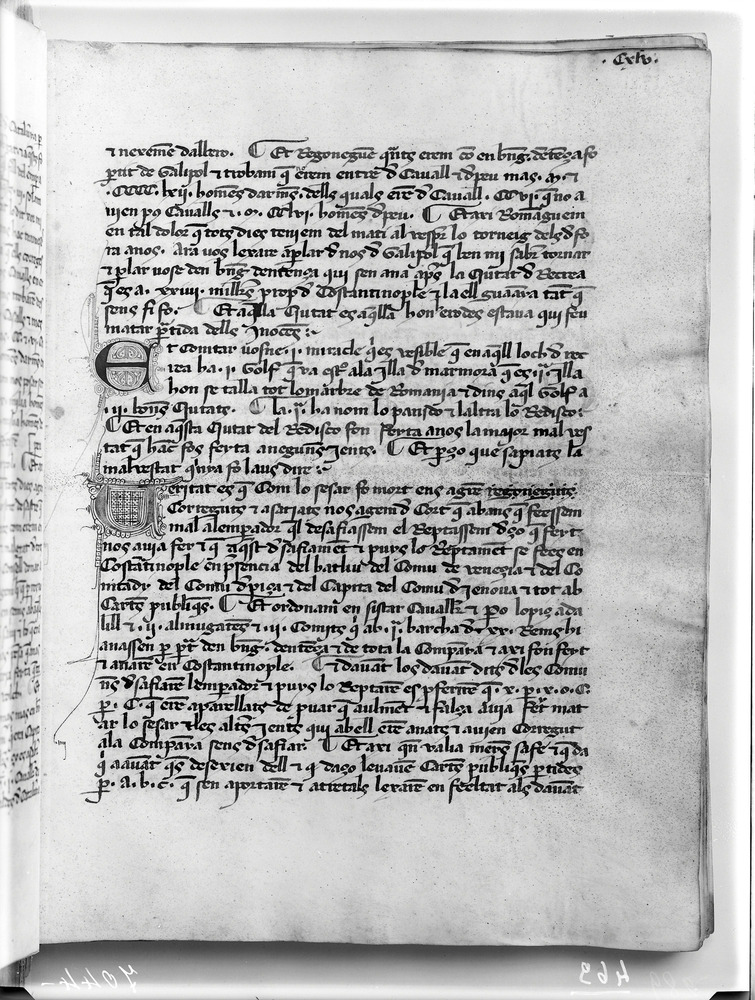 · Cxlv ·
⁊ nexeme dallero. ¶ Et Regonegue q̄nts erem cō en bng̃. dētēça fo
ptit de Galipol ⁊ trobam q̄ erem entre d̄ Cauall ⁊ d̄peu mas. .ɱ. ⁊
.CCCC. lxii. homēs darmes. dells quals erē d̄ Cauall. CCvi. q̄ no a
uien pꝰ Caualls ⁊ .ɱ. CClvi. homēs d̄peu. ¶ Et axi Romāguem
en tal dolor q̄ tots dies teniem del mati al vespr̄ lo torneig dels d̄fo
ra anos. Ara uos lexare aplar d̄ nos d̄ Galipol q̄ ben mi sabr̄ tornar
⁊ plar uose den bng̃ dentença qui sen ana ap̄s la Ciutat d̄ Recrea
q̄ es a. xxviii. milles prop d̄ Costantinople ⁊ la ell guaāra tāt q̄
sens fi fo. ¶ Et aq̄lla Ciutat es aq̄lla hon erodes estaua qui feu
matar p̄tida dells Inocēs :~
Et Comtar uos ne .i. miracle q̄ es vesible q̄ en aq̄ll loch d̄ rec
rea ha .i. Golf q̄ va estr̄ ala Illa d̄ marmora q̄ es .iᵃ. Illa
hon se talla tot lo marbre de Romania ⁊ dins aq̄l Golf a
.ii. bones Ciutats. ¶ la .iᵃ. ha nom lo panido ⁊ laltra lo Redisto :
¶ Et en aq̄sta Ciutat del Redisto fon ferta anos la maior mal ves
tat q̄ hāc fos ferta a neguns Jents. ¶ Et pço que sapiats la
maluestat q̄nya fo la us dire :~
Veritat es q̄ Com lo sesar fo mort ens ague regoneguts.
Correguts ⁊ asetiats nos agem d̄ Cort q̄ abans q̄ fecssem
mal alemperador q̄l desafiassem el Reptassem d̄ço q̄ fer t
nos auia fer ⁊ q̄ aq̄st d̄safiamēt ⁊ puys lo Reptamēt se fees en
Costātinople en p̄sencia del batliu del Comu de venezia ⁊ del Co
nitadr del Comu d̄ piça ⁊ del Capita del Comu d̄ Jenoua ⁊ tot ab
Cartes publiq̄s. ¶ Et ordonam en sistar Cauallr̄ ⁊ pꝰo lopis ada
lill ⁊ .ii. almugatēs ⁊ .ii. Comits q̄ ab .iᵃ. barcha d̄ .xx. Rems hi
anassen p pt den bng̃. dentēça ⁊ de tota la Companya ⁊ axi fon fert
⁊ anarē en Costantinople. ¶ Et dauāt los dauāt dits d̄ les Comu
ns d̄safiarē lemperador ⁊ puys lo Reptarē es pferirē q̄. x. p. x. o. C.
p̄. C. q̄ erē aparellats de puar q̄ aulmēt ⁊ falça auia fet mat
ar lo sesar ⁊ les altres Jents qui abell erē anats ⁊ auien Corregut
ala Companya sens d̄safiar. ¶ Et axi q̄n valia mens sa fe ⁊ q̄ da
q̄ aauāt q̄s desdixien dell ⁊ q̄ daço leuauē Cartes publiqs p̄tides
p̄ . a . b . c . q̄ sen aportarē ⁊ ateretals lexarē en feeltat als dauāt